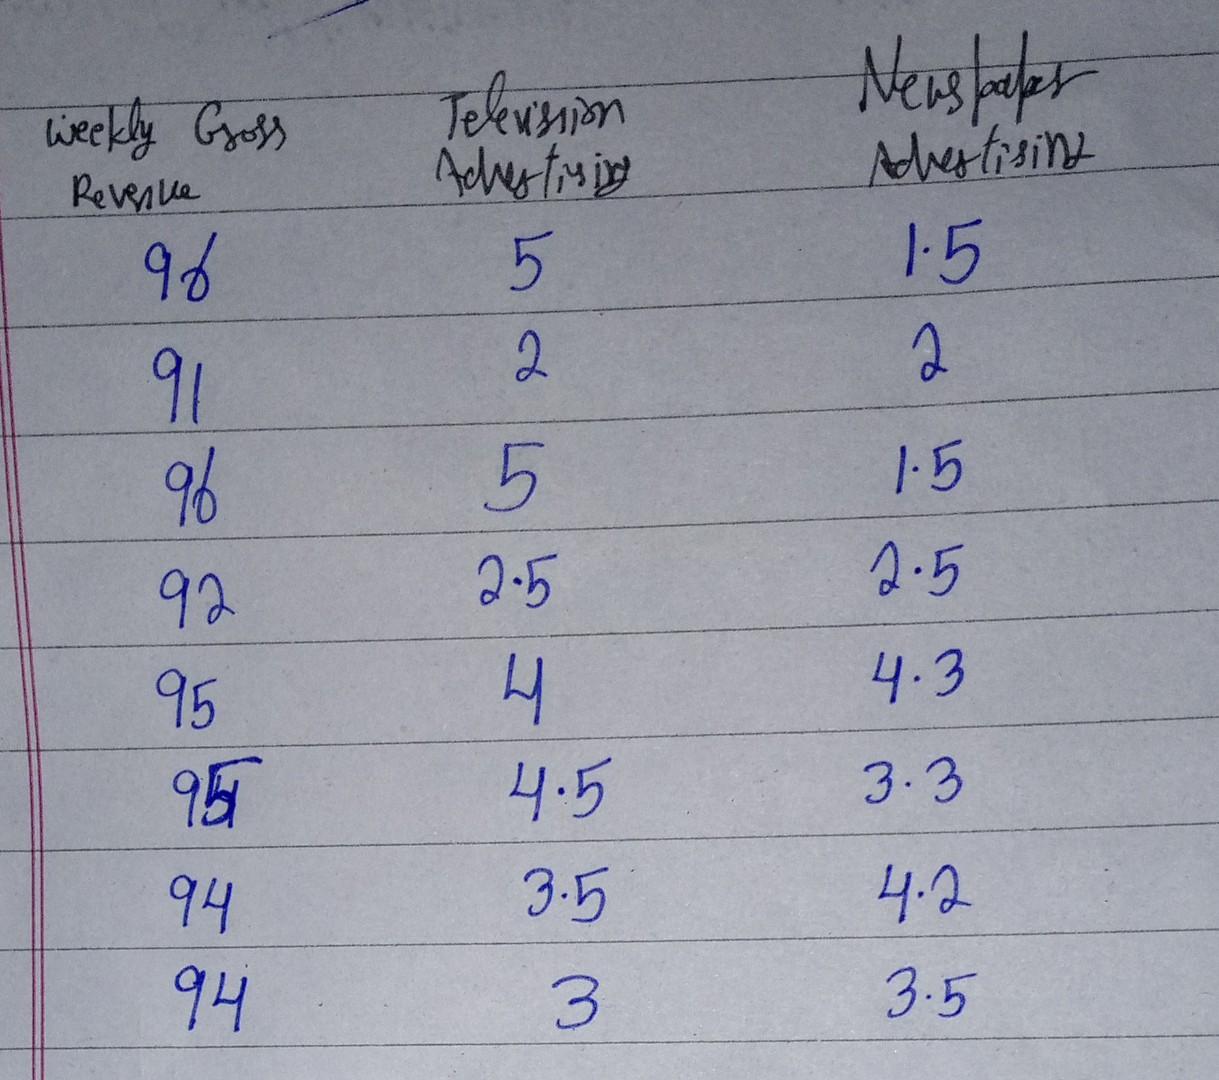 Weekly Gross Television Newspaper
Revenue Advertising Advertising
96 5 1.5
91 2 2
96 5 1.5
92 2.5 2.5
95 4 4.3
4.5 3.3
94 3.5 4.2
94 3 3.5